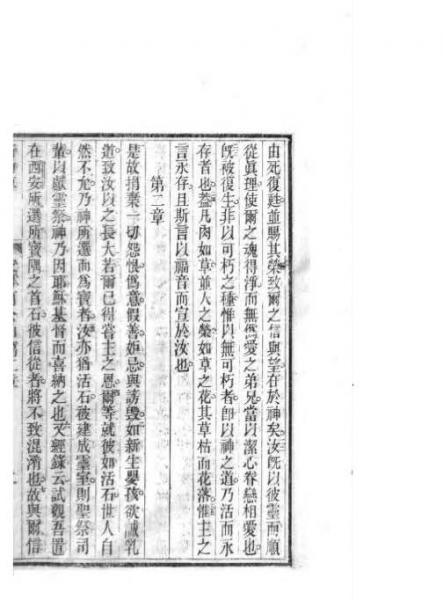 由死復甦並賜其榮致爾之信與望在於神矣汝旣以彼靈而順
從眞理使爾之魂得淨而無僞愛之弟兄當以潔心眷戀相愛也
旣被復生非以可朽之種惟以無可朽者卽以神之道乃活而永
存者也蓋凡肉如草並人之榮如草之花其草枯而花落惟主之
言永存且斯言以福音而宣於汝也
第二章
是故捐棄一切怨恨僞意假善妬忌與謗毁如新生嬰孩欲誠乳
道致汝以之長大若爾已得嘗主之恩爾等就彼如活石世人自
然不允乃神所選而爲寶者汝亦猶活石被建成靈室則聖祭司
輩以獻靈祭神乃因耶穌基督而喜納之也又經錄云試觀吾置
在西安所選所寶隅之首石彼信從者將不致混淆也故與爾信